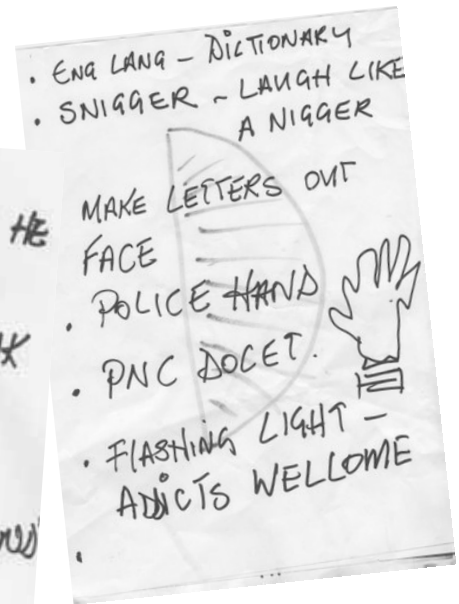 • ENG LANG – DICTIONARY
• SNIGGER ~ LAUGH LIKE
A NIGGER
MAKE LETTERS OUT
FACE
• POLICE HAND
• PNC DOCET.
• FLASHING LIGHT –
ADDICTS WELLOME
HE